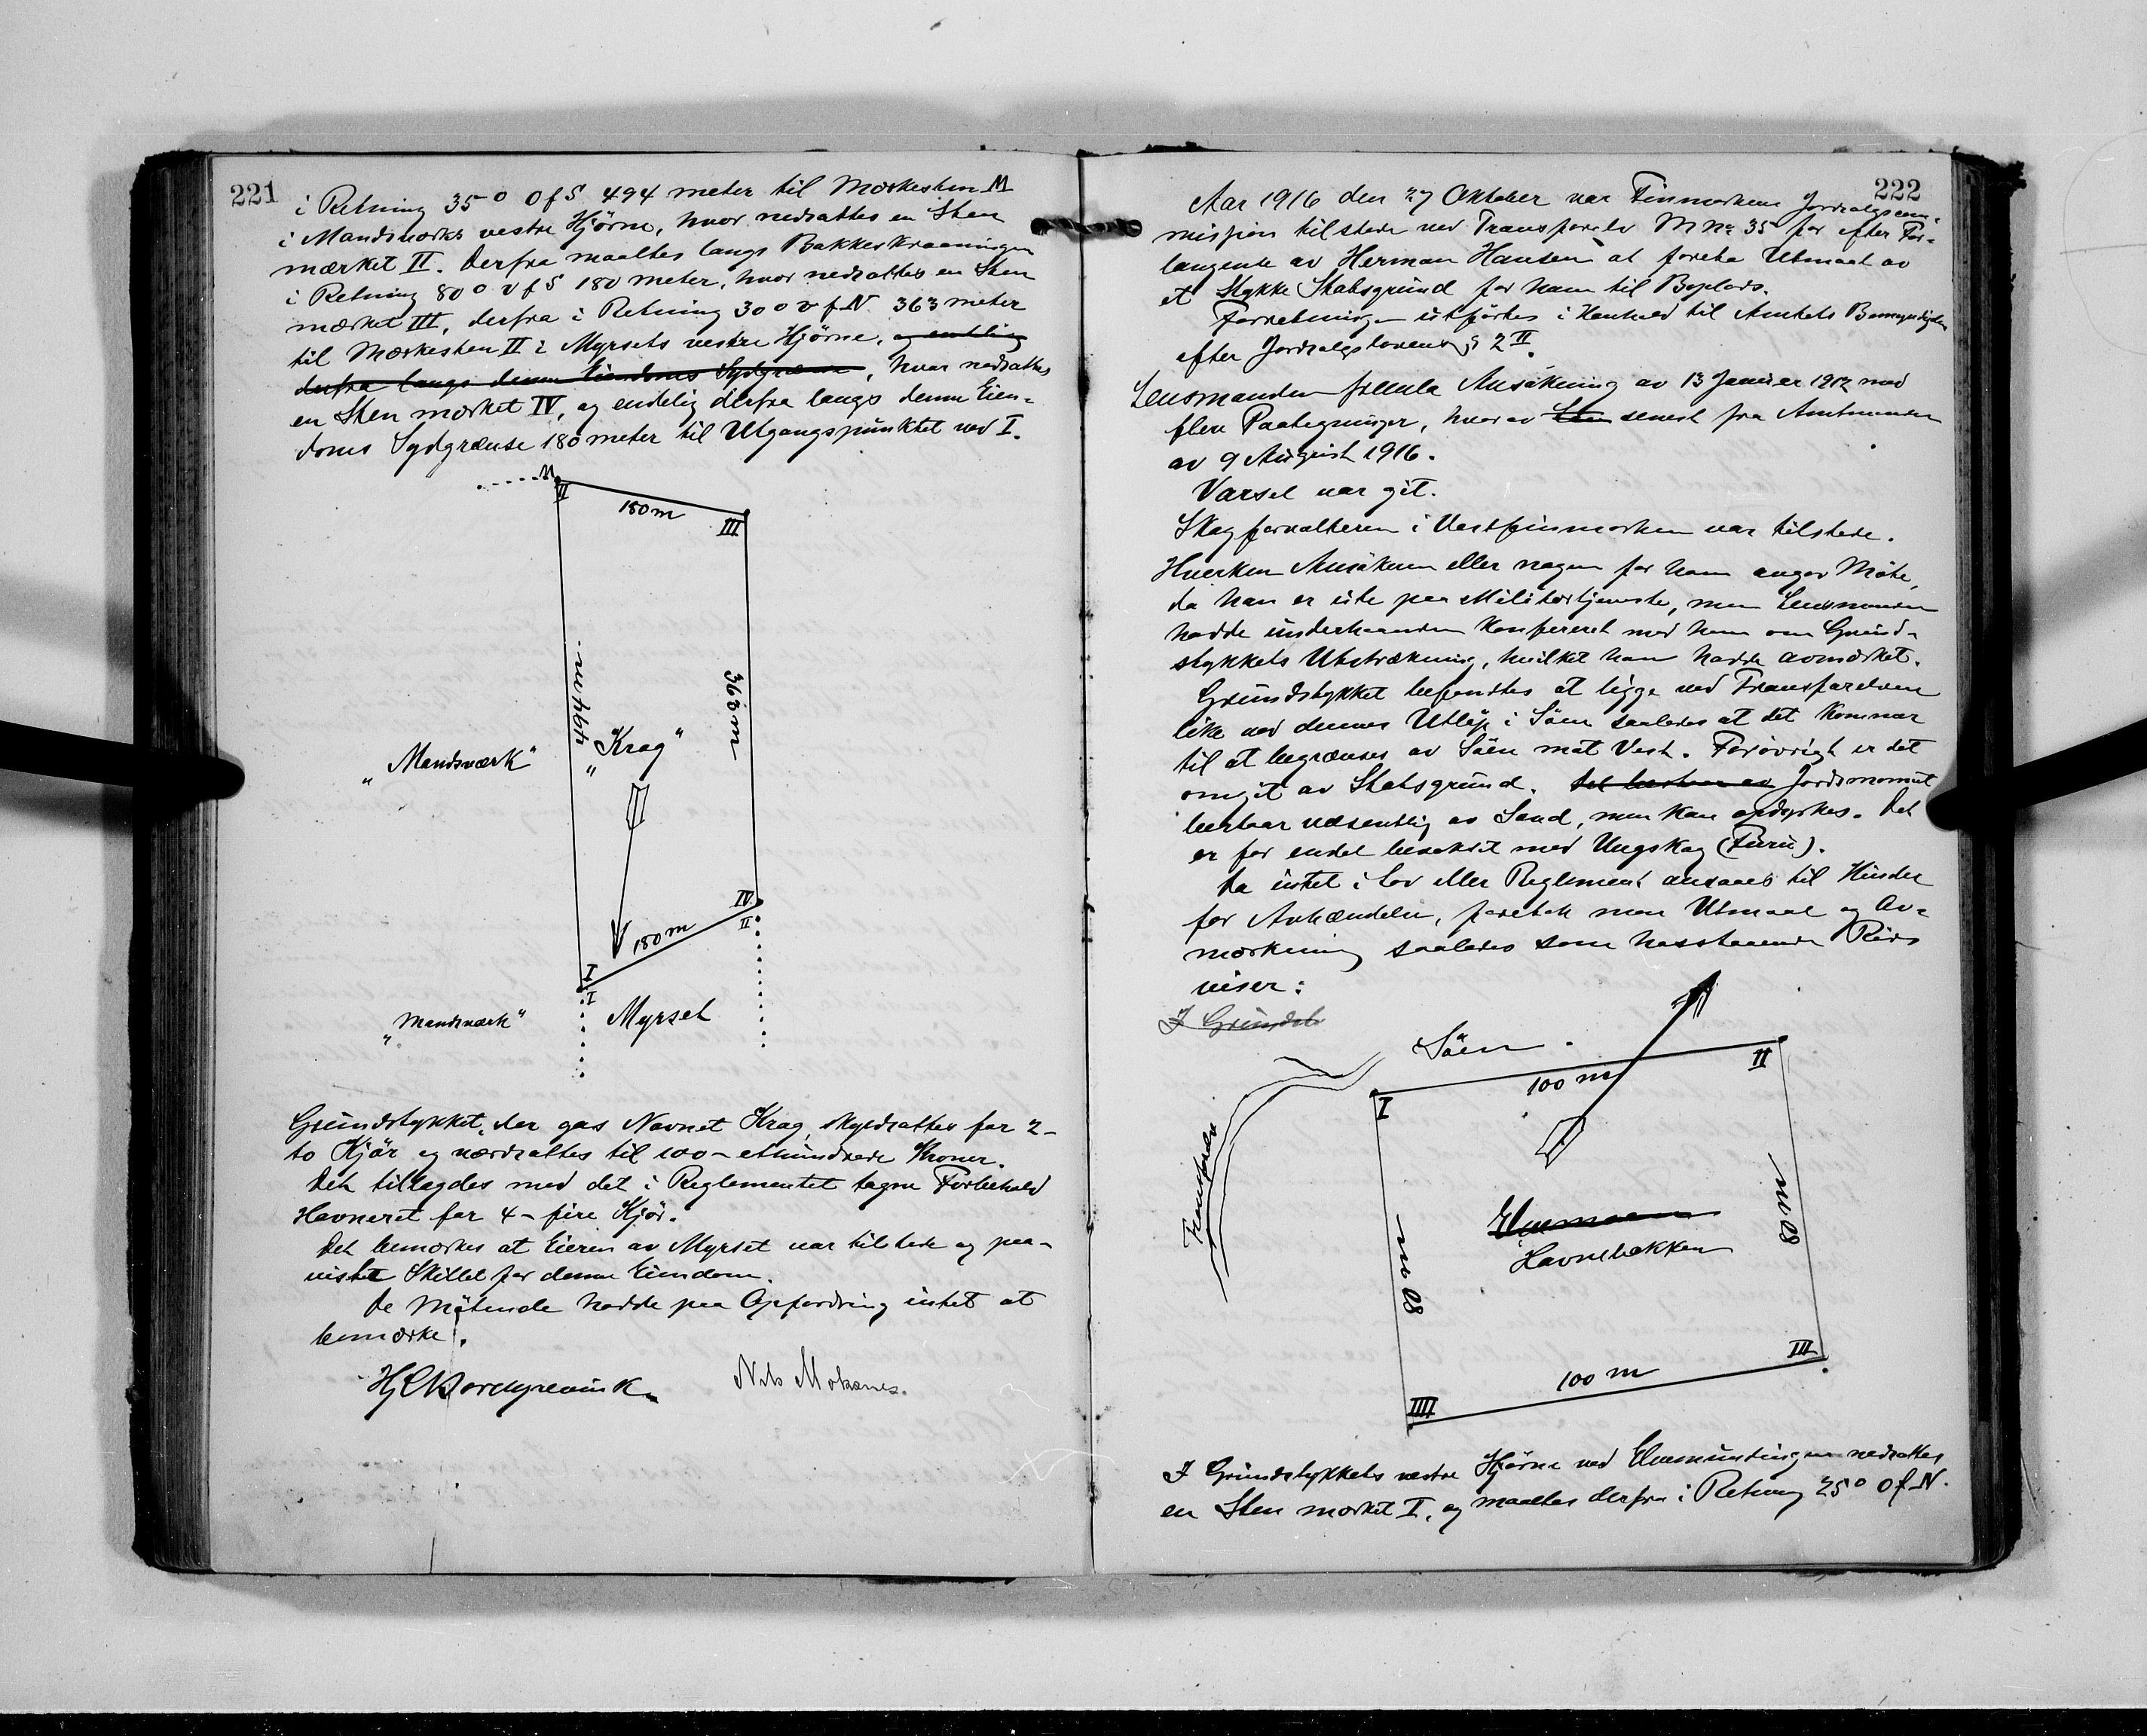 221
i Retning 35° O f S 494 meter til Mærkesten M
i Mandsværks vestre Hjörne, hvor nedsattes en Sten
mærket II. Derfra maaltes langs Bakkeskraaningen
i Retning 80° v f S 180 meter, hvor nedsattes en Sten
mærket III, derfra i Retning 30° v f N 363 meter
til Mærkesten II i Myrsets vestre Hjörne, og endelig
derfra langs denne Eiendoms Sydgrænse, hvor nedsattes
en Sten mærket IV, og endelig derfra langs denne Eien-
doms Sydgrænse 180 meter til Utgangspunktet ved I.
M
II
180 m
III
494 m.
363 m
"Mandsværk"
"Krag"
IV
II
180 m
I
I
"Mandsværk"
Myrset
Grundstykket, der gas Navnet Krag, skyldsattes for 2-
to Kjör og værdsattes til 100- ethundrede Kroner.
Det tillagdes med det i Reglementet tagne Forbehold
Havneret for 4- fire Kjör.
Det bemærkes at Eieren av Myrset var tilstede og paa-
viste Skillet for denne Eiendom.
De Mötende hadde paa Opfordring intet at
bemærke.
Nils Moksnes.
222
Aar 1916 den 27 Oktober var Finmarkens Jordsalgscom-
mission tilstede ved Transfarelv M No 35 for efter For-
langende av Herman Hansen at foreta Utmaal av
et Stykke Statsgrund for ham til Boplads.
Forretningen utförtes i Henhold til Amtets Bemyndigelse
efter Jordsalgslovens § 2 II.
Lensmanden fremla Ansökning av 13 Januar 1912 med
flere Paategninger, hvorav Sen senest fra Amtmanden
av 9 August 1916.
Varsel var git.
Skogforvalteren i Vestfinmarken var tilstede.
Hverken Ansökeren eller nogen for ham angav Möte,
da han er ute paa Militærtjeneste, men Lensmanden
hadde underhaanden konfereret med ham om Grund-
stykkets Utstrækning, hvilket han hadde avmærket.
Grundstykket befandtes at ligge ved Transfarelven
like ved dennes Utlöp i Söen saaledes at det kommer
til at begrænses av Söen mot Vest. Forövrigt er det
omgit av Statsgrund. Det bestaar av Jordsmonnet
bestaar væsentlig av Sand, men kan opdyrkes. Det
er for endel bevokset med Ungskog (Furu).
Da intet i Lov eller Reglement ansaaes til Hinder
for Avhændelse, foretok man Utmaal og Av-
mærkning saaledes som hosstaaende Rids
viser:
I Grundst
Söen
100 m
II
I
Transfarelv
80 m
80 m
Elvemoen
Havnebakken
III
100 m
IIII
I Grundstykkets vestre Hjörne ved Elvemundingen nedsattes
en Sten mærket I, og maaltes derfra i Retning 25° O f N.